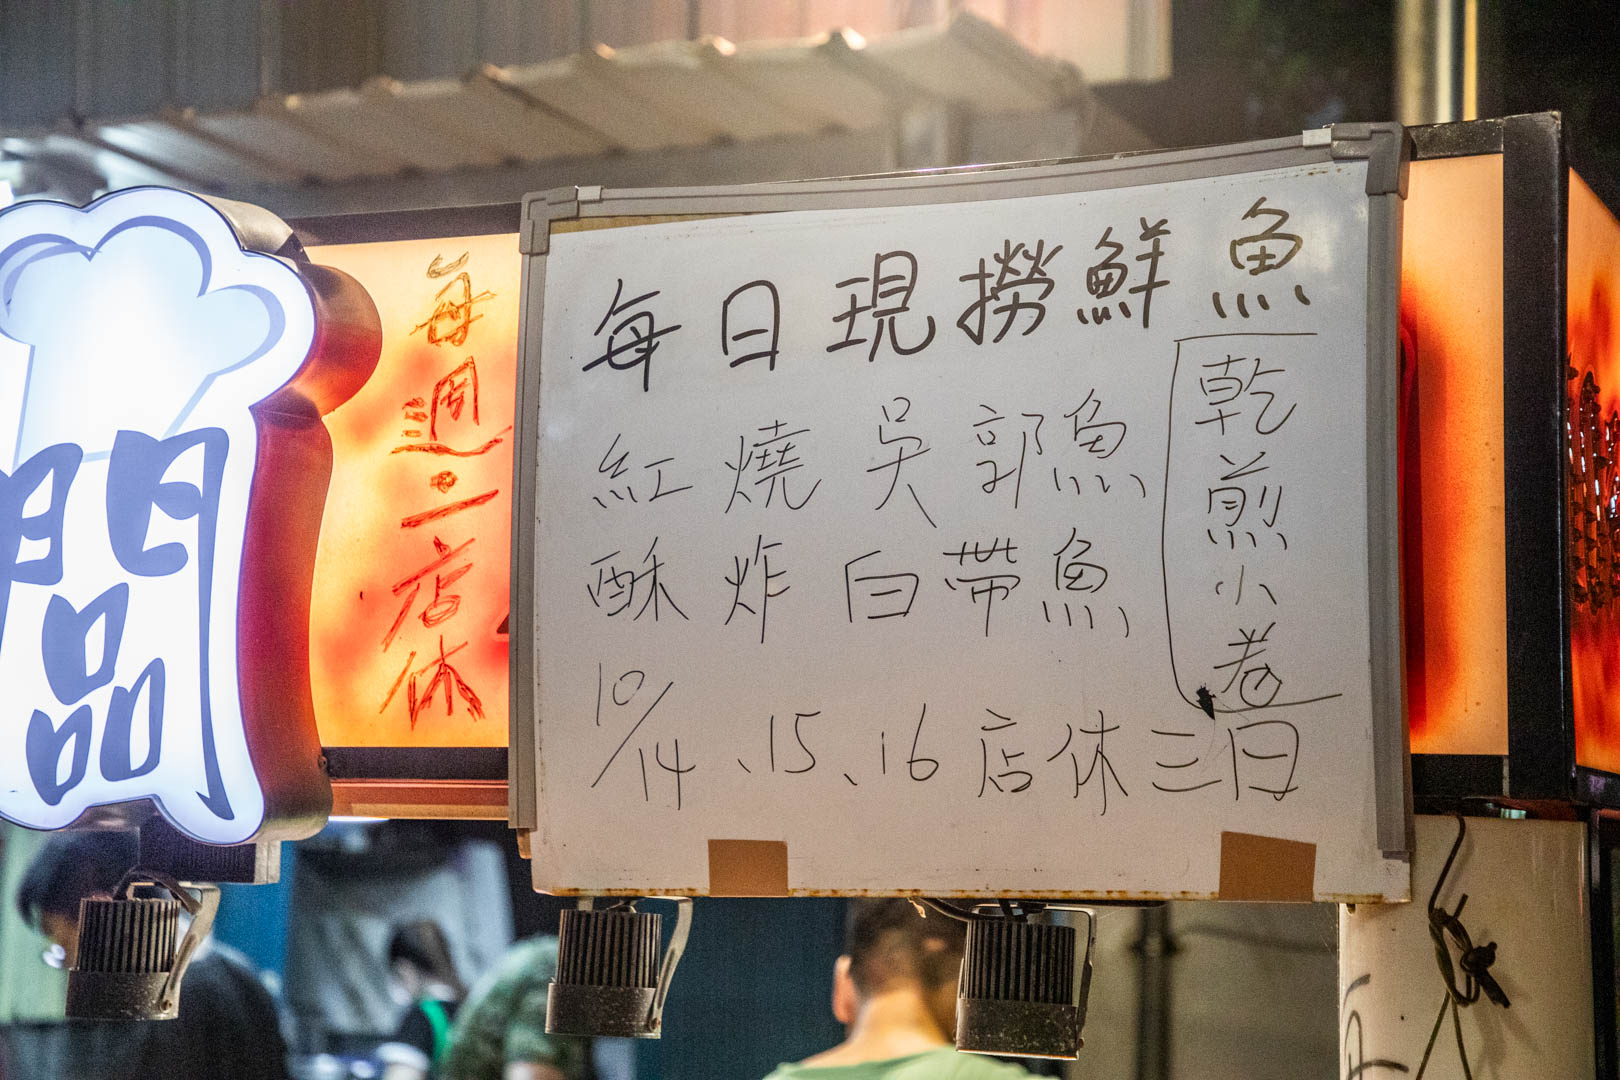 每週二店休
每日現撈鮮魚
紅燒吳郭魚
酥炸白帶魚
乾煎小卷
10/14、15、16店休三日